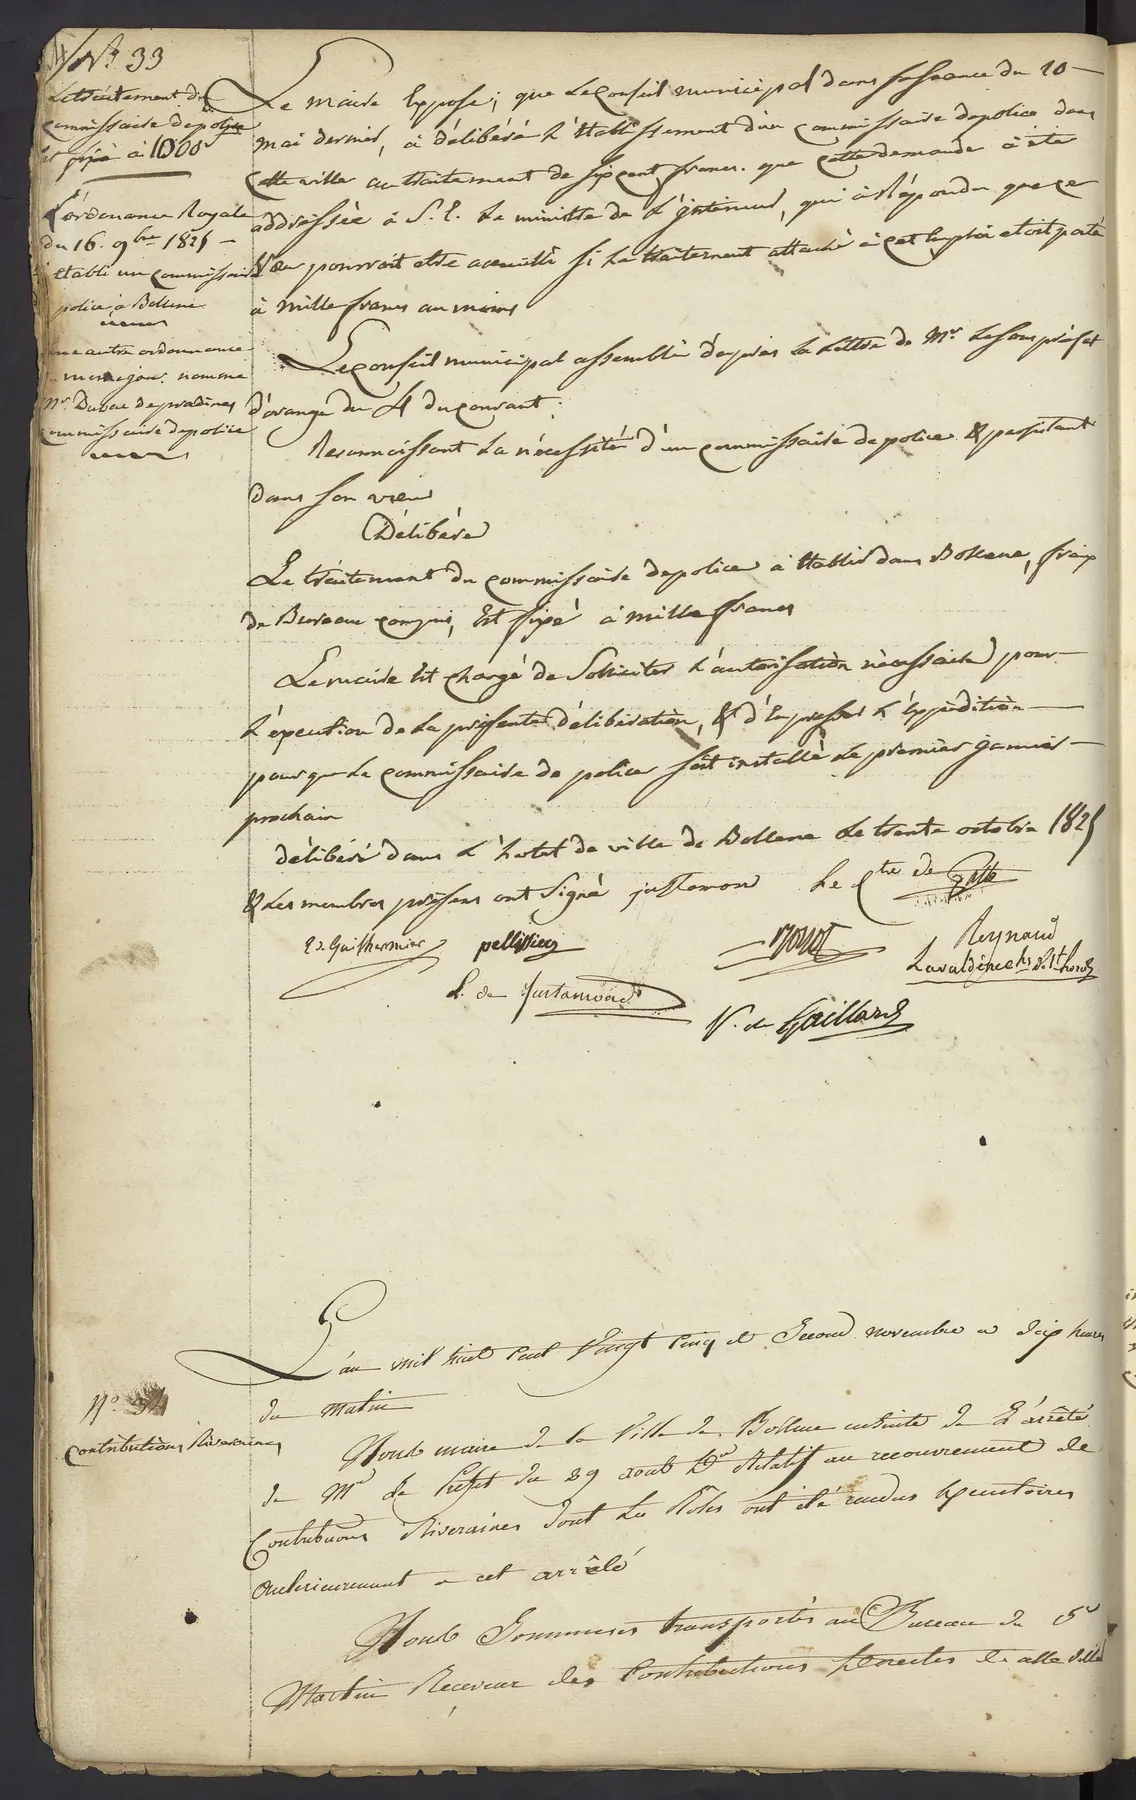 N° 33
Le traitement du
commissaire de police
est fixé à 1000
L'ordonance Royale
du 16. 9bre 1825 —
établi un commissaire
police à Bollene
une autre ordonnance
meme jour nomme
Mr. Duvac de pradines
commissaire de police
Le maire Expose; que Le Conseil municipal dans sa séance du 10 —
mai dernier, à délibéré L'établissement d'un commissaire de police dans
cette ville au traitement de six cent francs. que cette demande à été
addressée à S. E. Le ministre de L'interieur, qui à Répondu que ce
vœu pourroit etre accueilli si Le traitement attaché à cet Employ etoit porté
à mille francs au moins
Le Conseil municipal assemblé d'après La Lettre de Mr. Le sous préfet
d'orange du 4 du courant;
Reconnoissant La nécessité d'un commissaire de police & persistant
dans son vœu
Délibére
Le traitement du commissaire de police à établir dans Bollene, fraix
de Bureau compris, Est fixé à mille francs
Le maire Est chargé de Solliciter L'autorisation nécessaire pour —
L'éxecution de La présente délibération, & d'En presser L'Expédition —
pour que Le commissaire de police soit installé Le premier janvier —
prochain
délibéré dans L'hotel de ville de Bollene Le trente octobre 1825
& Les membres présens ont Signé justamon Le Cte de
E.d. Guilhermier pellissier Reynaud
L. de Justamond
V. de Gaillard
L'an mil huit Cent Vingt Cinq et Second novembre a dix heures
du matin
N° 34
Contributions Riveraines
Nous maire de la Ville de Bollene ensuite de L'arrêté
de Mr le Préfet du 29 aout Dr Relatif au recouvrement de
Contributions Riveraines dont Les Roles ont été rendus Executoires
antérieurement a cet arrêté
Nous Sommes transportés au Bureau du Sr
Martin Receveur des Contributions Directes de cette Ville